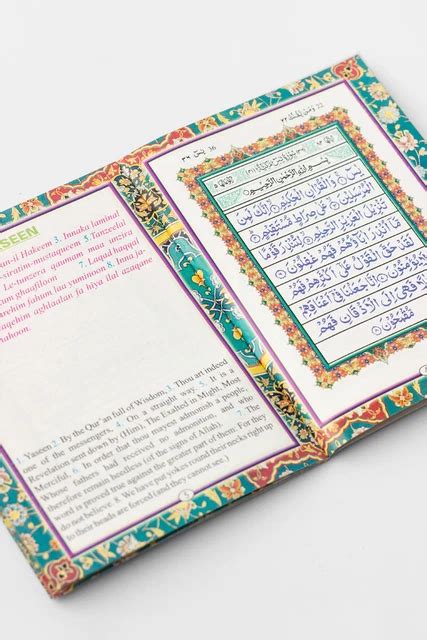 ASEEN
Hakeem 3. Innaka laminal
siratim-mustaqueem 5.Tanzeelal
Le-tunzera qauman maa unzira
ghaafiloon 7. Laqad haqqal
fahum lau yuminoon 8. Inna
aghlaalan fa hiya ilal azqane
1. Yaseen 2. By the Qur'an full of Wisdom, 3. Thou art indeed
one of the messengers, 4. On a straight way. 5. It is a
Revelation sent down by (Him), The Exalted in Might, Most
Merciful, 6. In order that thou mayest admonish a people,
Whose fathers had received no admonition, and who
therefore remain heedless (of the signs of Allah). 7. The
word is proved true against the greater part of them: For they
do not believe. 8. We have put yokes round their necks right up
to their heads are forced (and they cannot see.)
5
يٰسٓ ٣٦ 36
وَمَنْ يَّقْنُتْ ٢٢ 22
بِسْمِ اللهِ الرَّحْمٰنِ الرَّحِيْمِ
يٰسٓ ۚ وَالْقُرْاٰنِ الْحَكِيْمِ ۙ اِنَّكَ لَمِنَ
الْمُرْسَلِيْنَ ۙ عَلٰى صِرَاطٍ مُّسْتَقِيْمٍ ۭ
تَنْزِيْلَ الْعَزِيْزِ الرَّحِيْمِ ۙ لِتُنْذِرَ قَوْمًا
مَّآ اُنْذِرَ اٰبَآؤُهُمْ فَهُمْ غٰفِلُوْنَ
لَقَدْ حَقَّ الْقَوْلُ عَلٰٓى اَكْثَرِهِمْ فَهُمْ
لَا يُؤْمِنُوْنَ اِنَّا جَعَلْنَا فِيْٓ اَعْنَاقِهِمْ
اَغْلٰلًا فَهِيَ اِلَى الْاَذْقَانِ فَهُمْ
مُّقْمَحُوْنَ